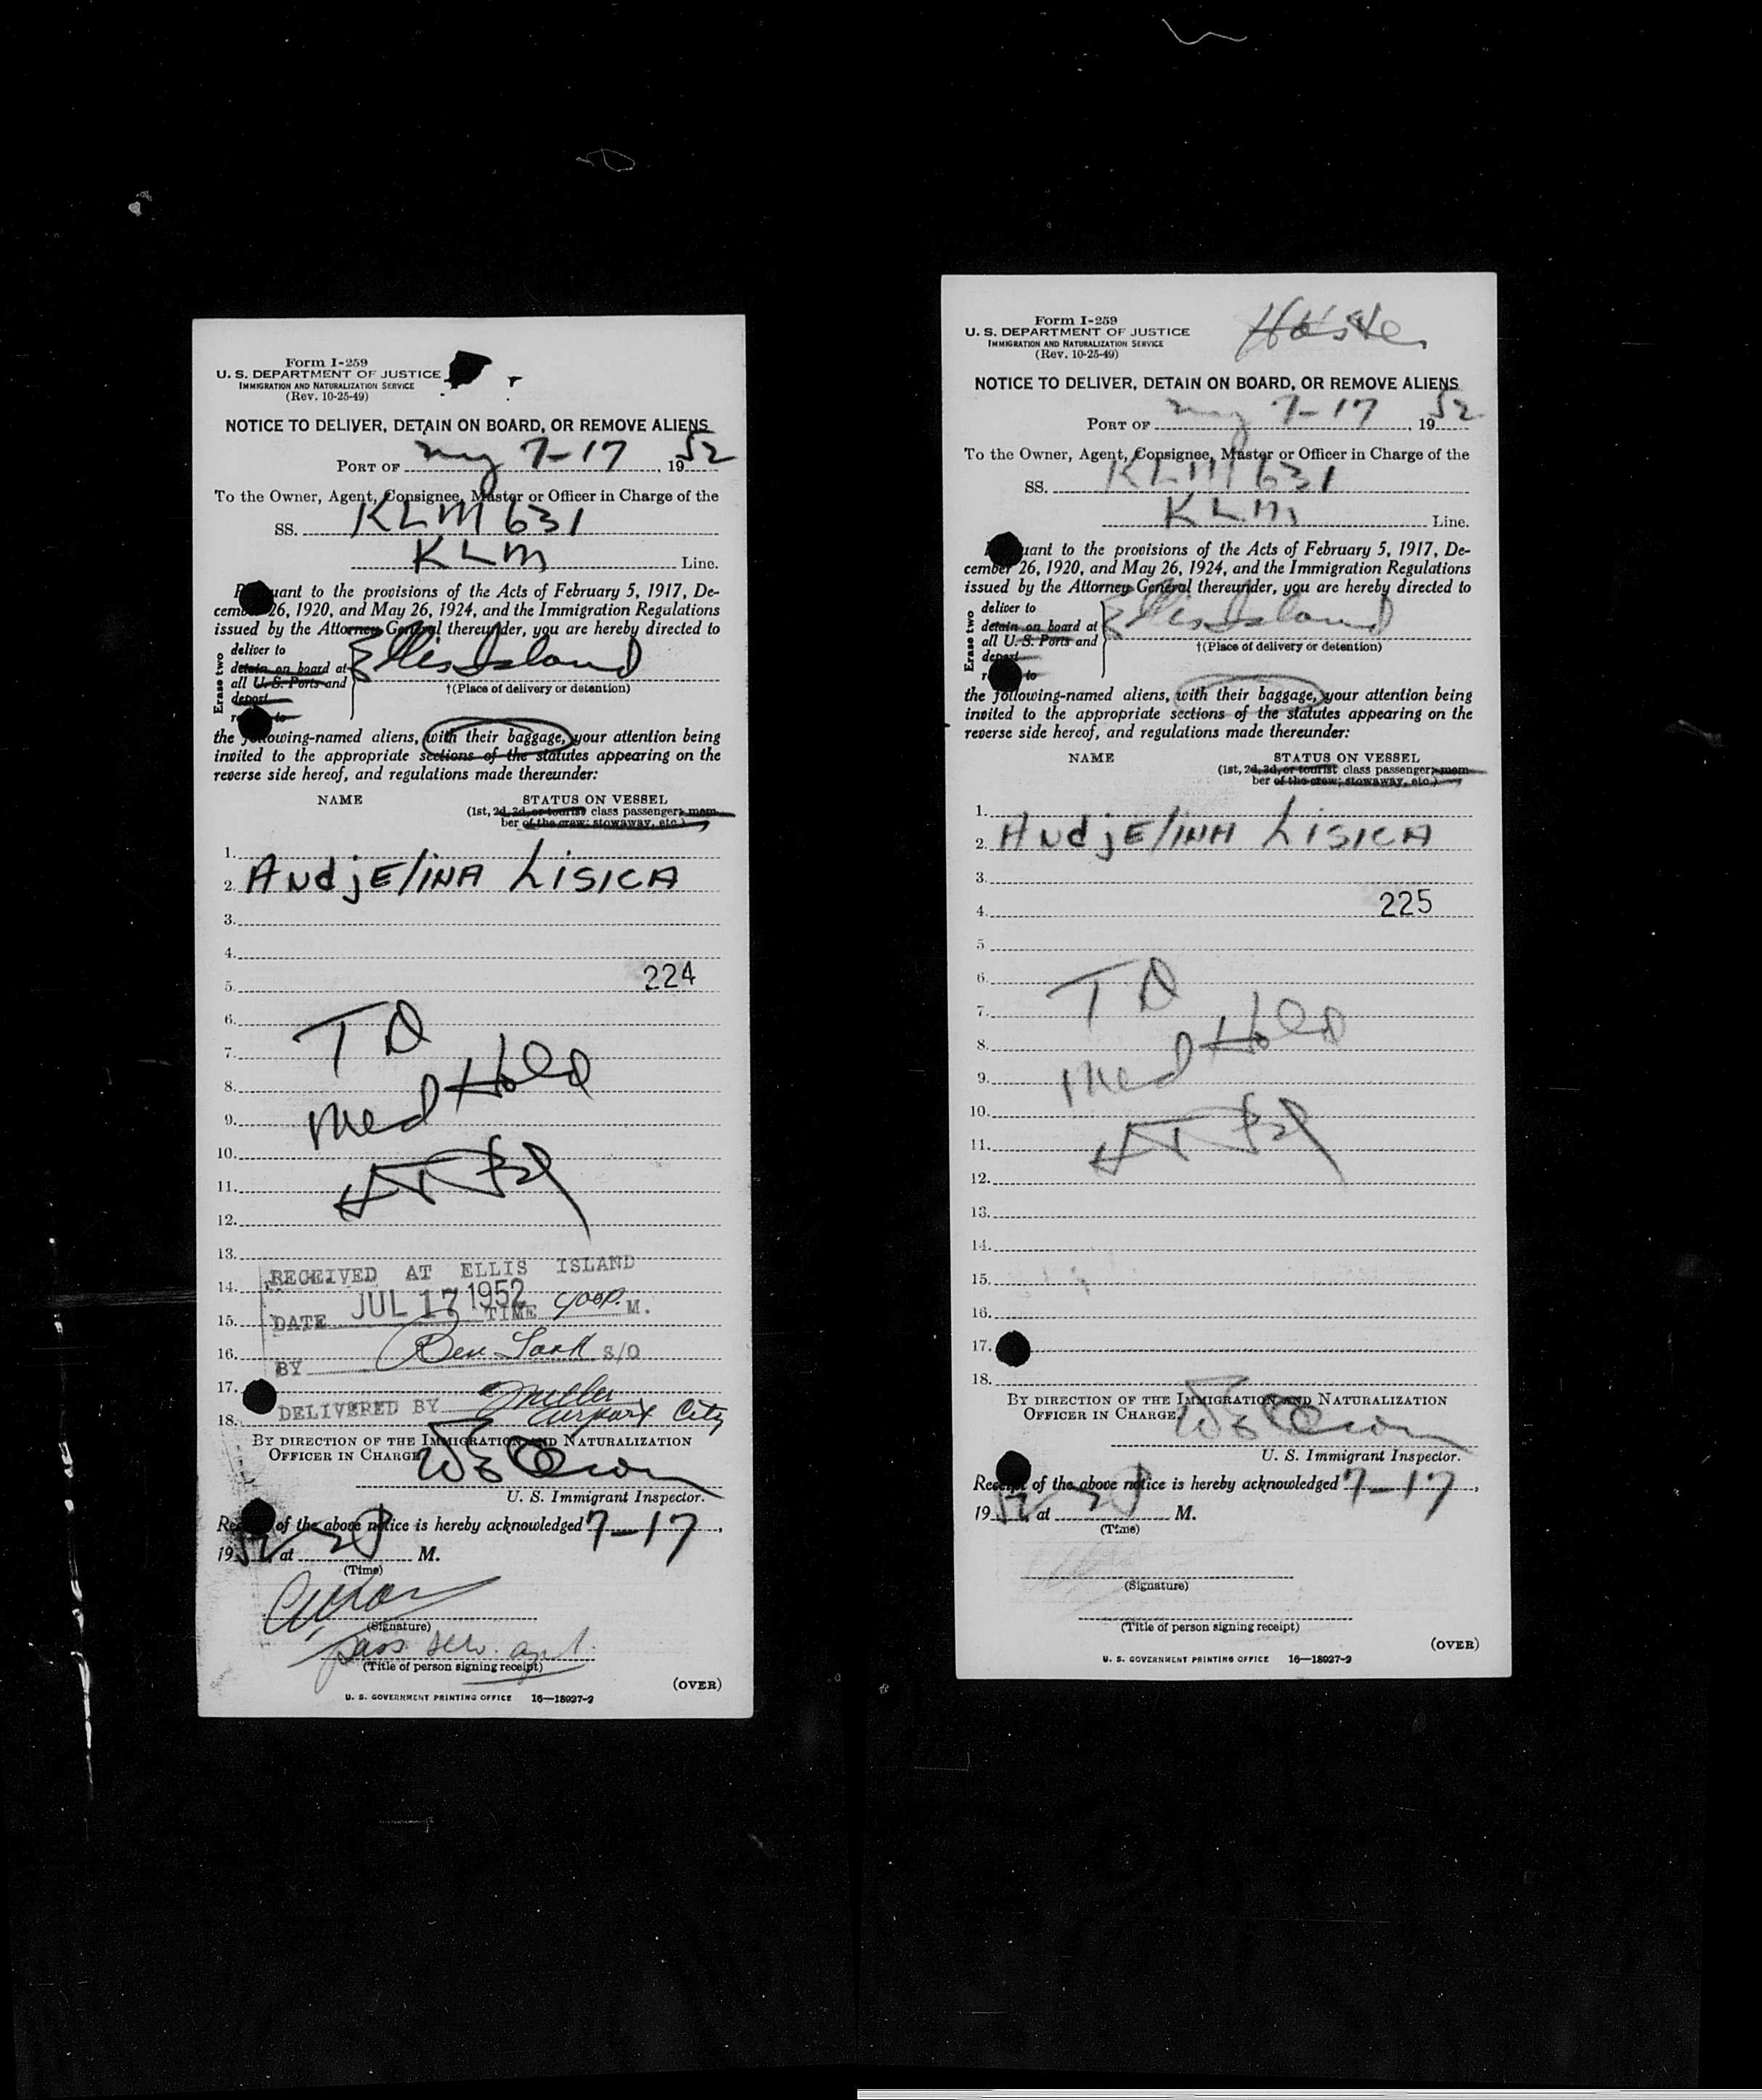 Form I-259
U. S. DEPARTMENT OF JUSTICE
IMMIGRATION AND NATURALIZATION SERVICE
(Rev. 10-25-49)
NOTICE TO DELIVER, DETAIN ON BOARD, OR REMOVE ALIENS
PORT OF ny 7-17, 1952
To the Owner, Agent, Consignee, Master or Officer in Charge of the
SS. KLM 631
KLM Line.
Pursuant to the provisions of the Acts of February 5, 1917, De-
cember 26, 1920, and May 26, 1924, and the Immigration Regulations
issued by the Attorney General thereunder, you are hereby directed to
Erase two
deliver to
detain on board at
all U. S. Ports and
deport
to
Ellis Island
†(Place of delivery or detention)
the following-named aliens, with their baggage, your attention being
invited to the appropriate sections of the statutes appearing on the
reverse side hereof, and regulations made thereunder:
NAME STATUS ON VESSEL
(1st, 2d, 3d, or tourist class passenger; mem-
ber of the crew; stowaway, etc.)
1.
2. AndjElinA LisicA
3.
4.
5. 224
6.
7. TD
8.
9. Med Hold
10.
11.
12.
13.
14. RECEIVED AT ELLIS ISLAND
15. DATE JUL 17 1952 TIME 400P. M.
16. BY Ben S/O
17.
18. DELIVERED BY Miller
Airport City
BY DIRECTION OF THE IMMIGRATION AND NATURALIZATION
OFFICER IN CHARGE
U. S. Immigrant Inspector.
Receipt of the above notice is hereby acknowledged 7-17,
1952 at M.
(Time)
(Signature)
pass serv. agt.
(Title of person signing receipt)
(OVER)
U. S. GOVERNMENT PRINTING OFFICE 16—18027-2
Form I-259
U. S. DEPARTMENT OF JUSTICE
IMMIGRATION AND NATURALIZATION SERVICE
(Rev. 10-25-49)
NOTICE TO DELIVER, DETAIN ON BOARD, OR REMOVE ALIENS
PORT OF ny 7-17, 1952
To the Owner, Agent, Consignee, Master or Officer in Charge of the
SS. KLM 631
KLM Line.
Pursuant to the provisions of the Acts of February 5, 1917, De-
cember 26, 1920, and May 26, 1924, and the Immigration Regulations
issued by the Attorney General thereunder, you are hereby directed to
Erase two
deliver to
detain on board at
all U. S. Ports and
deport
to
Ellis Island
†(Place of delivery or detention)
the following-named aliens, with their baggage, your attention being
invited to the appropriate sections of the statutes appearing on the
reverse side hereof, and regulations made thereunder:
NAME STATUS ON VESSEL
(1st, 2d, 3d, or tourist class passenger; mem-
ber of the crew; stowaway, etc.)
1.
2. AndjElinA LisicA
3.
4. 225
5.
6. TD
7.
8.
9. Med Hold
10.
11.
12.
13.
14.
15.
16.
17.
18.
BY DIRECTION OF THE IMMIGRATION AND NATURALIZATION
OFFICER IN CHARGE
U. S. Immigrant Inspector.
Receipt of the above notice is hereby acknowledged 7-17,
1952 at M.
(Time)
(Signature)
(Title of person signing receipt)
(OVER)
U. S. GOVERNMENT PRINTING OFFICE 16—18027-2